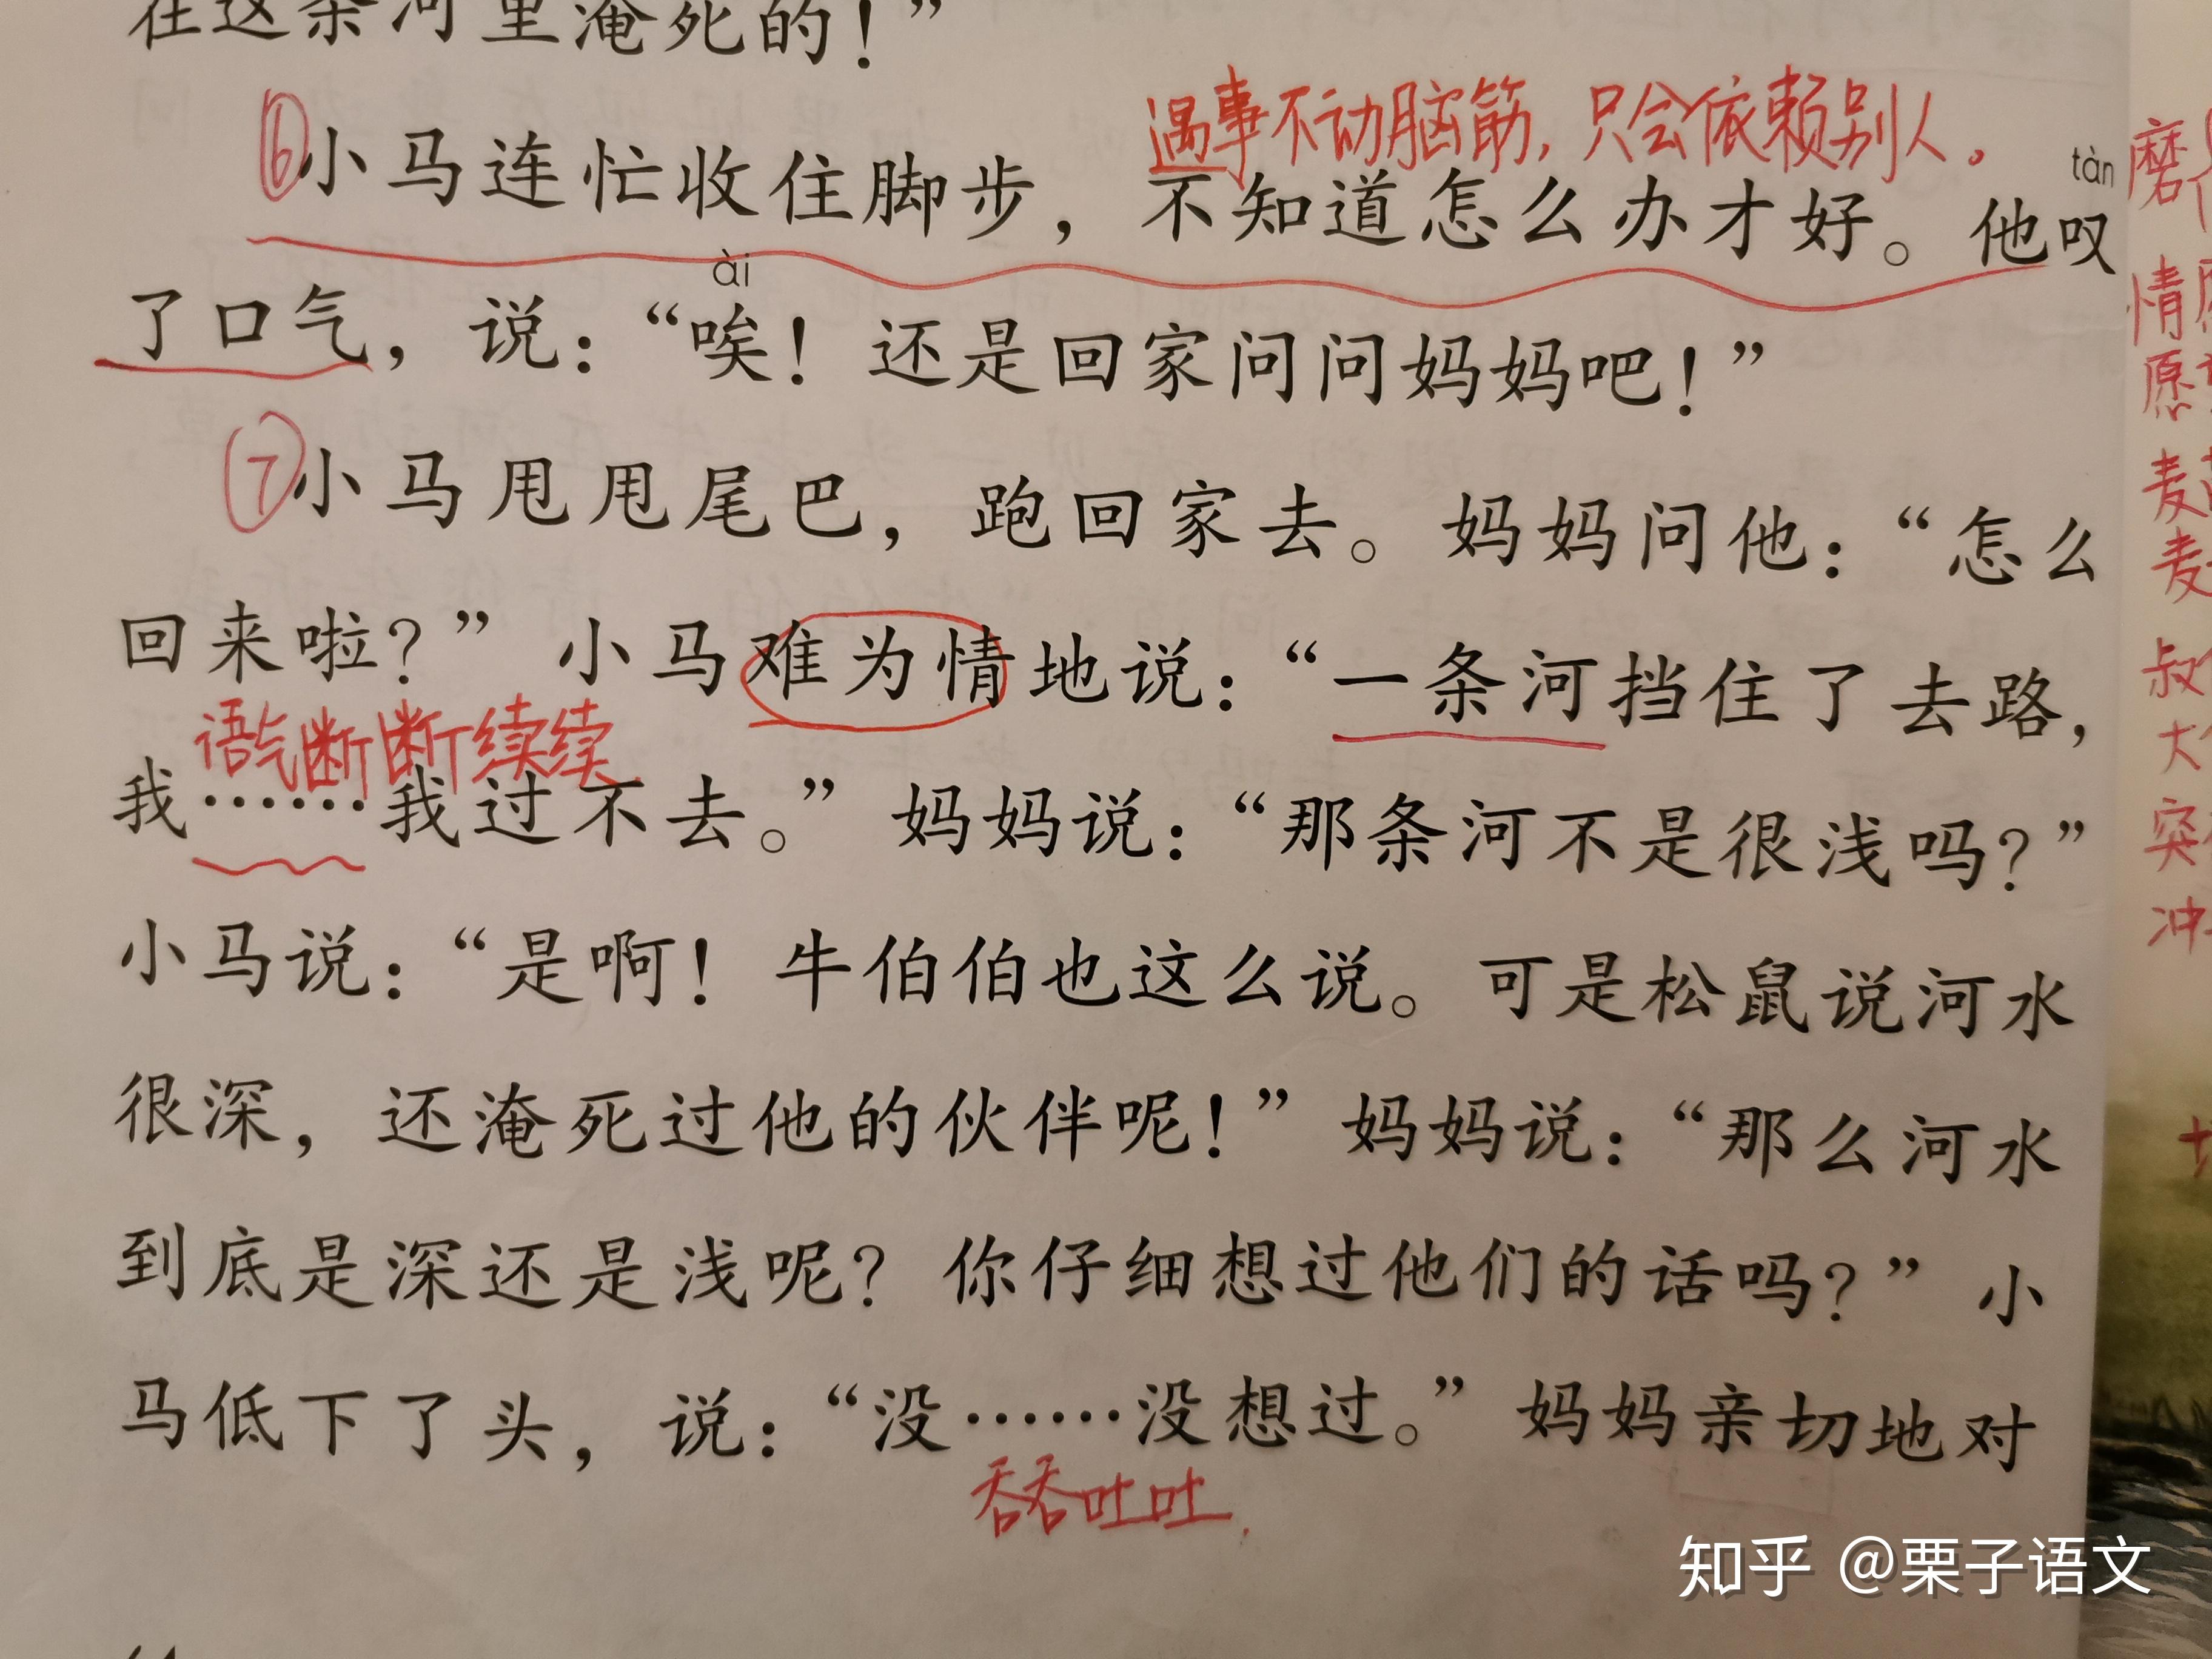 在这条河里淹死的！”
遇事不动脑筋，只会依赖别人。
tàn
⑥小马连忙收住脚步，不知道怎么办才好。他叹
ài
了口气，说：“唉！还是回家问问妈妈吧！”
⑦小马甩甩尾巴，跑回家去。妈妈问他：“怎么
回来啦？”小马难为情地说：“一条河挡住了去路，
语气断断续续
我……我过不去。”妈妈说：“那条河不是很浅吗？”
小马说：“是啊！牛伯伯也这么说。可是松鼠说河水
很深，还淹死过他的伙伴呢！”妈妈说：“那么河水
到底是深还是浅呢？你仔细想过他们的话吗？”小
马低下了头，说：“没……没想过。”妈妈亲切地对
吞吞吐吐
磨
情
愿
麦
麦
叔
大
突
冲
知乎 @栗子语文